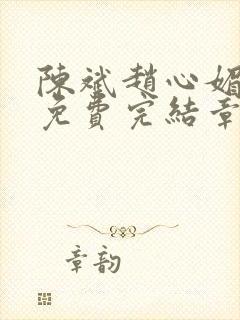 陳斌趙心媚
免費完結章
章韵